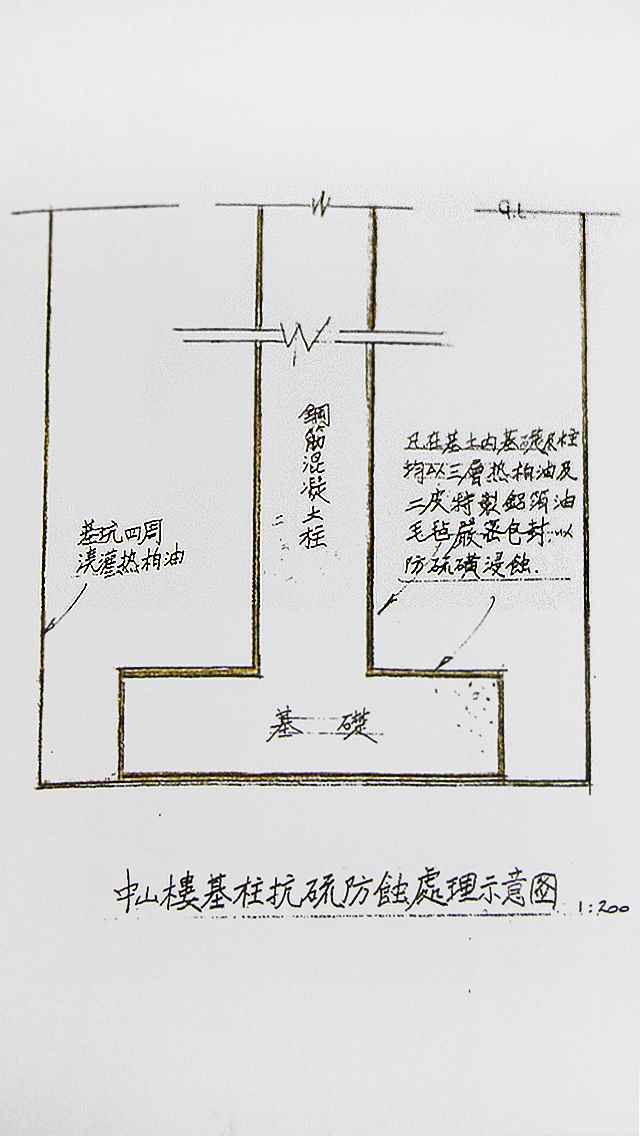 G.L.
鋼筋混凝土柱
凡在基土内基礎及柱
均以三層热柏油及
二皮特製鋁箔油
毛毡嚴密包封.以
防硫磺浸蝕.
基坑四周
澆灌热柏油
基礎
中山樓基柱抗硫防蝕處理示意图 1:200